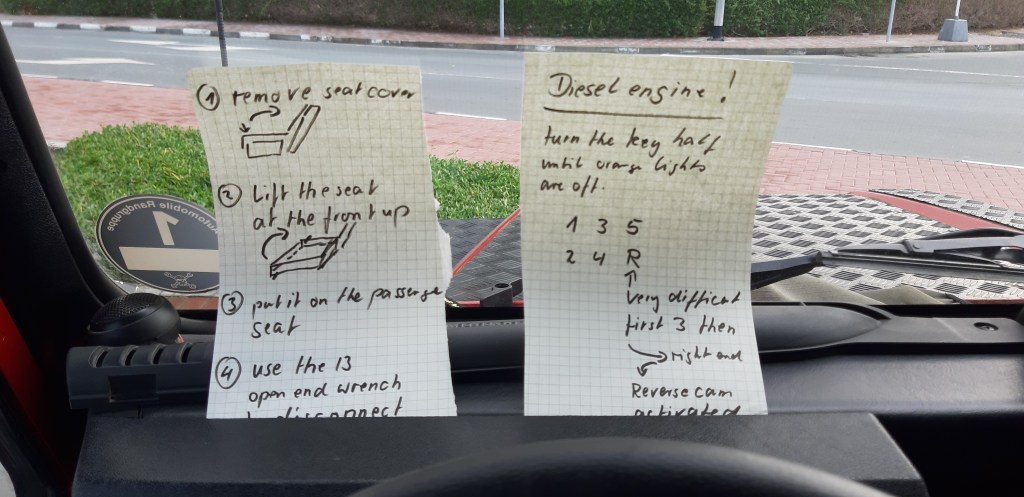 ① remove seat cover
② Lift the seat
at the front up
③ put it on the passenger
seat
④ use the 13
open end wrench
to disconnect
Diesel engine!
turn the key half
until orange lights
are off.
1 3 5
2 4 R
↑
Very difficult
first 3 then
right and
Reverse cam
activated
Automobile Randgruppe
1